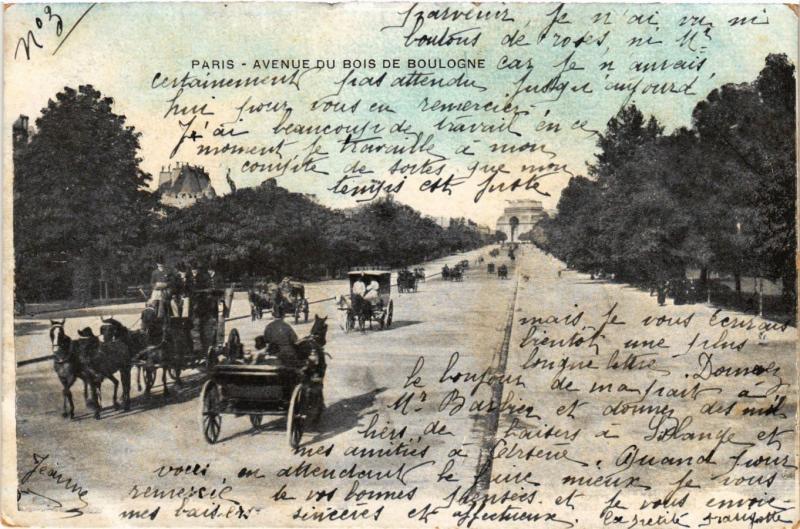 No 3
parvenir, Je n'ai vu ni
boutons de roses, ni Mr
PARIS - AVENUE DU BOIS DE BOULOGNE
car Je n'aurais
certainement pas attendu Jusqu'aujourd'
hui pour vous en remercier.
J'ai beaucoup de travail en ce
moment Je travaille à mon
compte de sortes que mon
temps est Juste
mais Je vous écrirais
bientôt une plus
longue lettre. Donner
le bonjour de ma part à
Mr Barbier et donner des mil
liers de baisers à Solange et
mes amitiés à
Quand pour
vous, en attendant le faire mieux Je vous
remercie de vos bonnes pensées et Je vous envoie
mes baisers sincères et affectueux. La petite
Jeanne